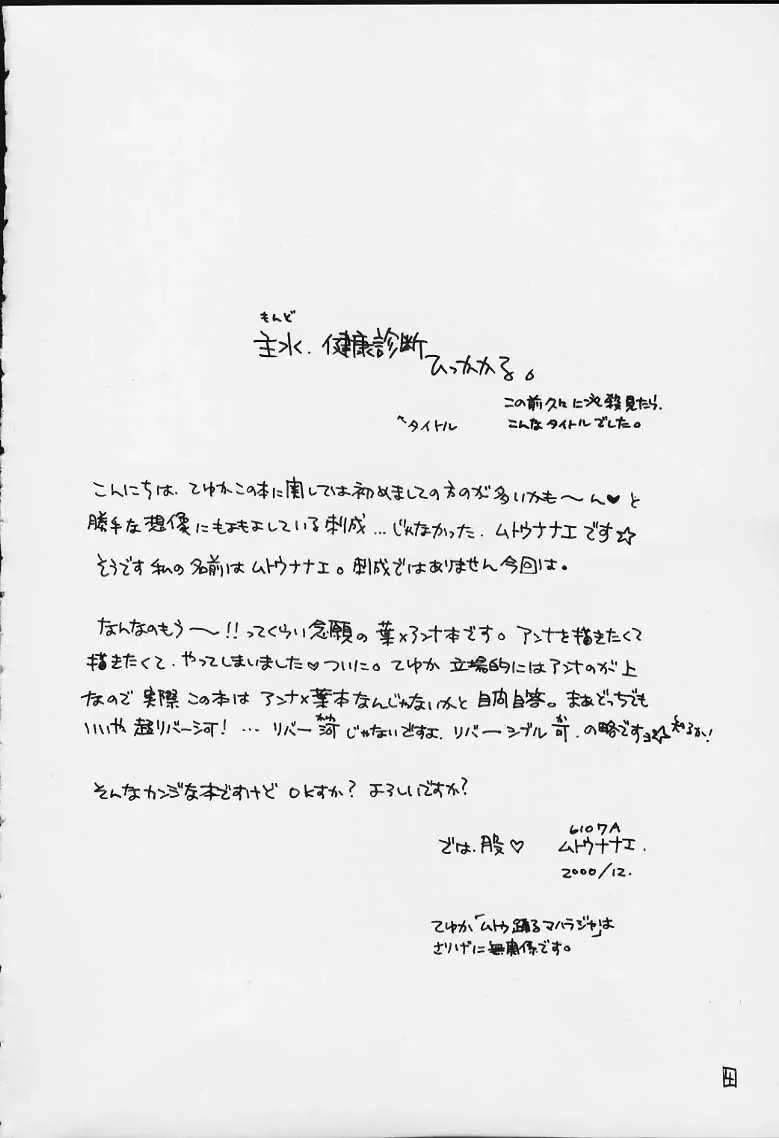 もんど
主水、健康診断
ひっかかる。
この前久々に必殺見たら、
↖タイトル
こんなタイトルでした。
こんにちは、てゆかこの本に関しては初めましての方のが多いかも〜ん♥と
勝手な想像にもよもよしている刺成…じゃなかった、ムトウナナエです☆
そうです私の名前はムトウナナエ。刺成ではありません今回は。
なんなのもう〜!!ってくらい念願の葉×アンナ本です。アンナを描きたくて
描きたくて、やってしまいました♥ついに。てゆか立場的にはアンナのが上
なので実際この本はアンナ×葉本なんじゃないかと自問自答。まあどっちでも
いいや超リバー河!…リバー河じゃないですよ、リバーシブル可、の略ですヨ☆知るか!
そんなカンジな本ですけどOKすか?よろしいですか?
では、股♡
6107A
ムトウナナエ.
2000/12.
てゆか「ムトウ踊るマハラジャ」は
さりげに無関係です。
4